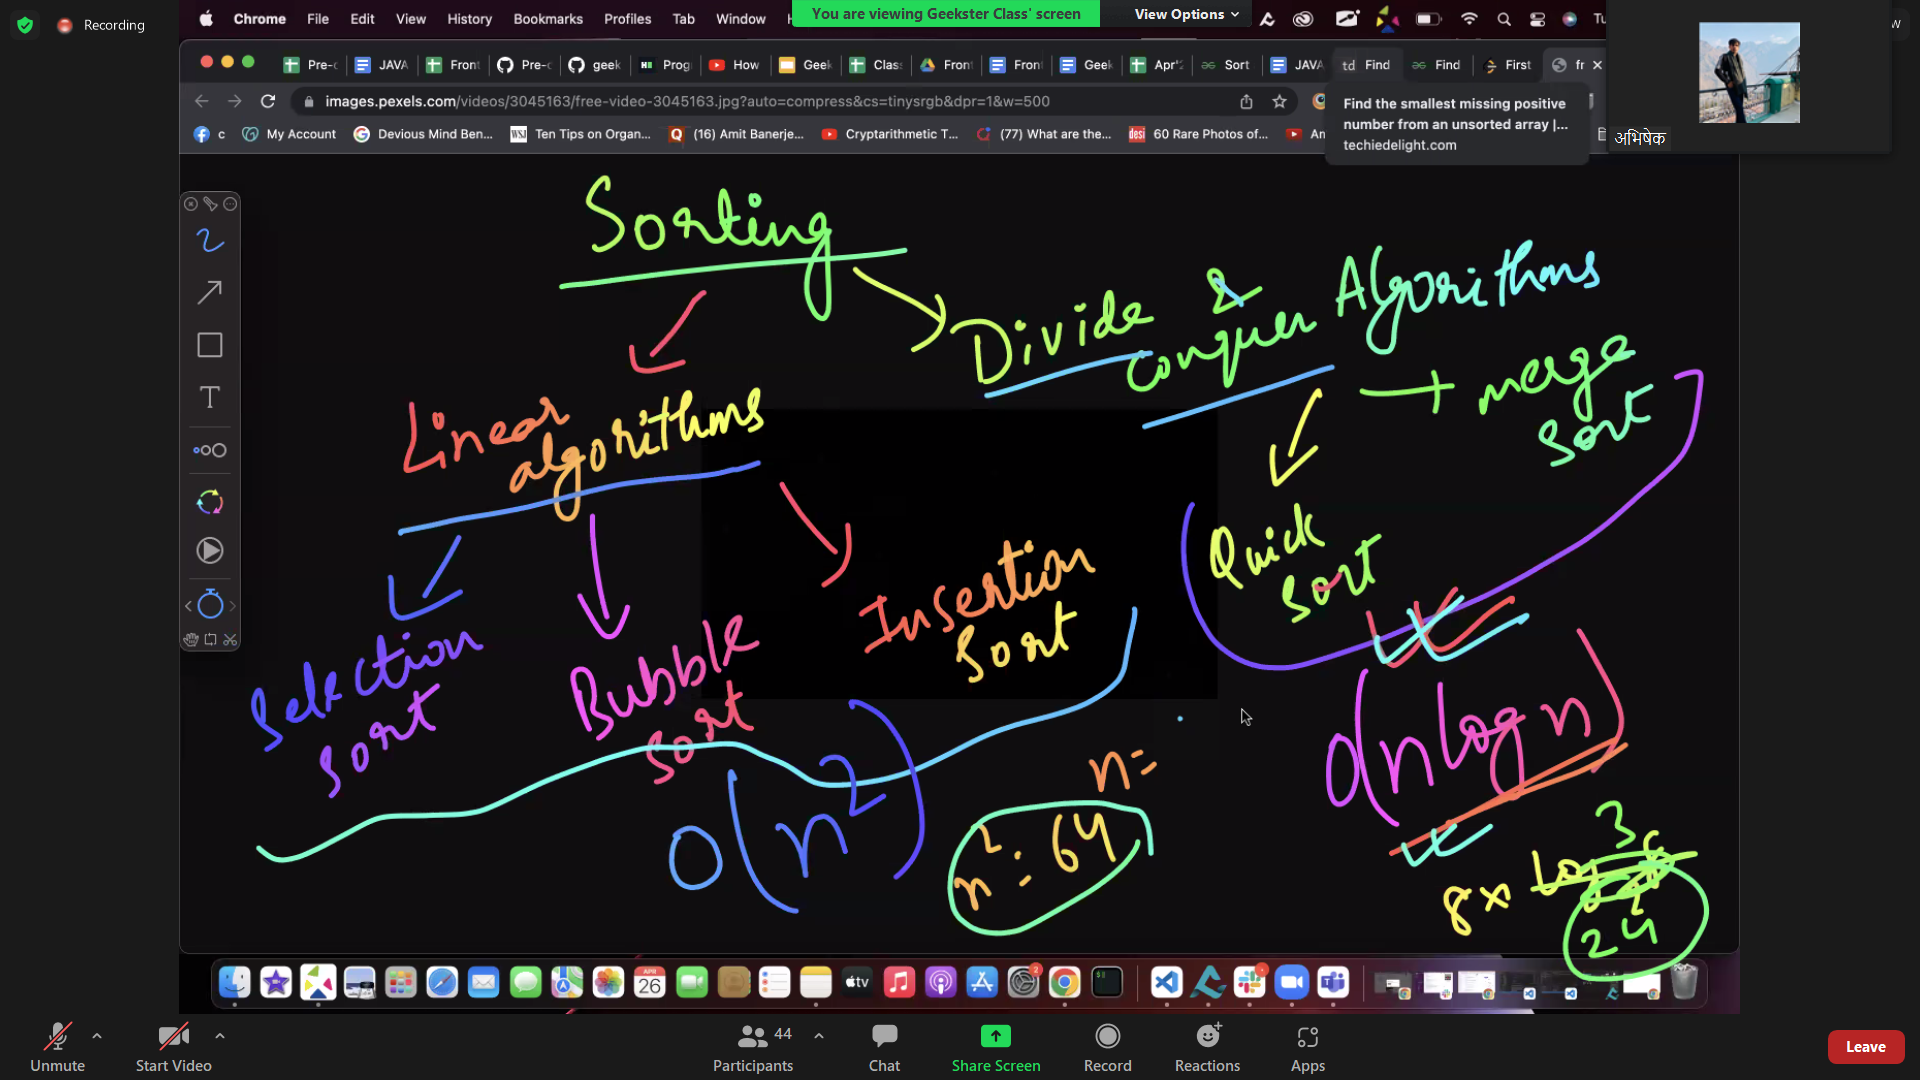 Recording
Chrome File Edit View History Bookmarks Profiles Tab Window
You are viewing Geekster Class' screen
View Options
Pre-c JAVA Front Pre-c geek Prog How Geek Class Front Fron Geek Apr'2 Sort JAVA Find Find First fr
images.pexels.com/videos/3045163/free-video-3045163.jpg?auto=compress&cs=tinysrgb&dpr=1&w=500
c My Account Devious Mind Ben... Ten Tips on Organ... (16) Amit Banerje... Cryptarithmetic T... (77) What are the... 60 Rare Photos of... An
Find the smallest missing positive
number from an unsorted array |...
techiedelight.com
अभिषेक
Sorting
Divide & Conquer Algorithms
Linear algorithms
merge sort
Quick Sort
Insertion Sort
Selection Sort
Bubble Sort
O(n²)
n=
n² = 64
O(n log n)
3
8x
24
APR
26
tv
Unmute
Start Video
44
Participants
Chat
Share Screen
Record
Reactions
Apps
Leave